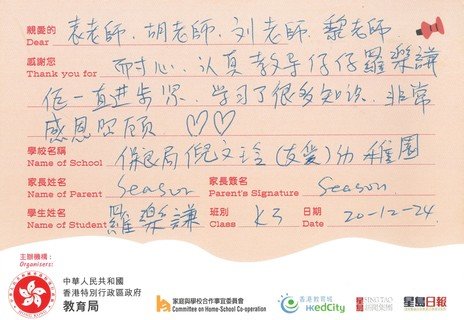 親愛的 袁老師、胡老師、刘老師、黎老師
Dear
感謝您 而寸心、认真教导仔仔羅樂謙
Thank you for
佢一直进步咗、学习了很多知识、非常
感恩照顾 ♡♡
學校名稱 保良局倪文玲(友愛)幼稚園
Name of School
家長姓名 Season 家長簽名 Season
Name of Parent Parent's Signature
學生姓名 羅樂謙 班別 K3 日期 20-12-24
Name of Student Class Date
主辦機構:
Organisers:
中華人民共和國
香港特別行政區政府
教育局
家庭與學校合作事宜委員會
Committee on Home-School Co-operation
香港教育城
HKedCity
SING TAO
星島新聞集團
星島日報